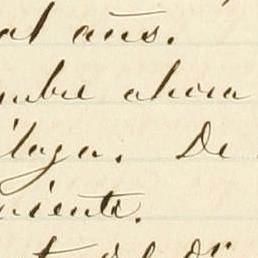 al años.
mbre ahora
laga. De
niente.